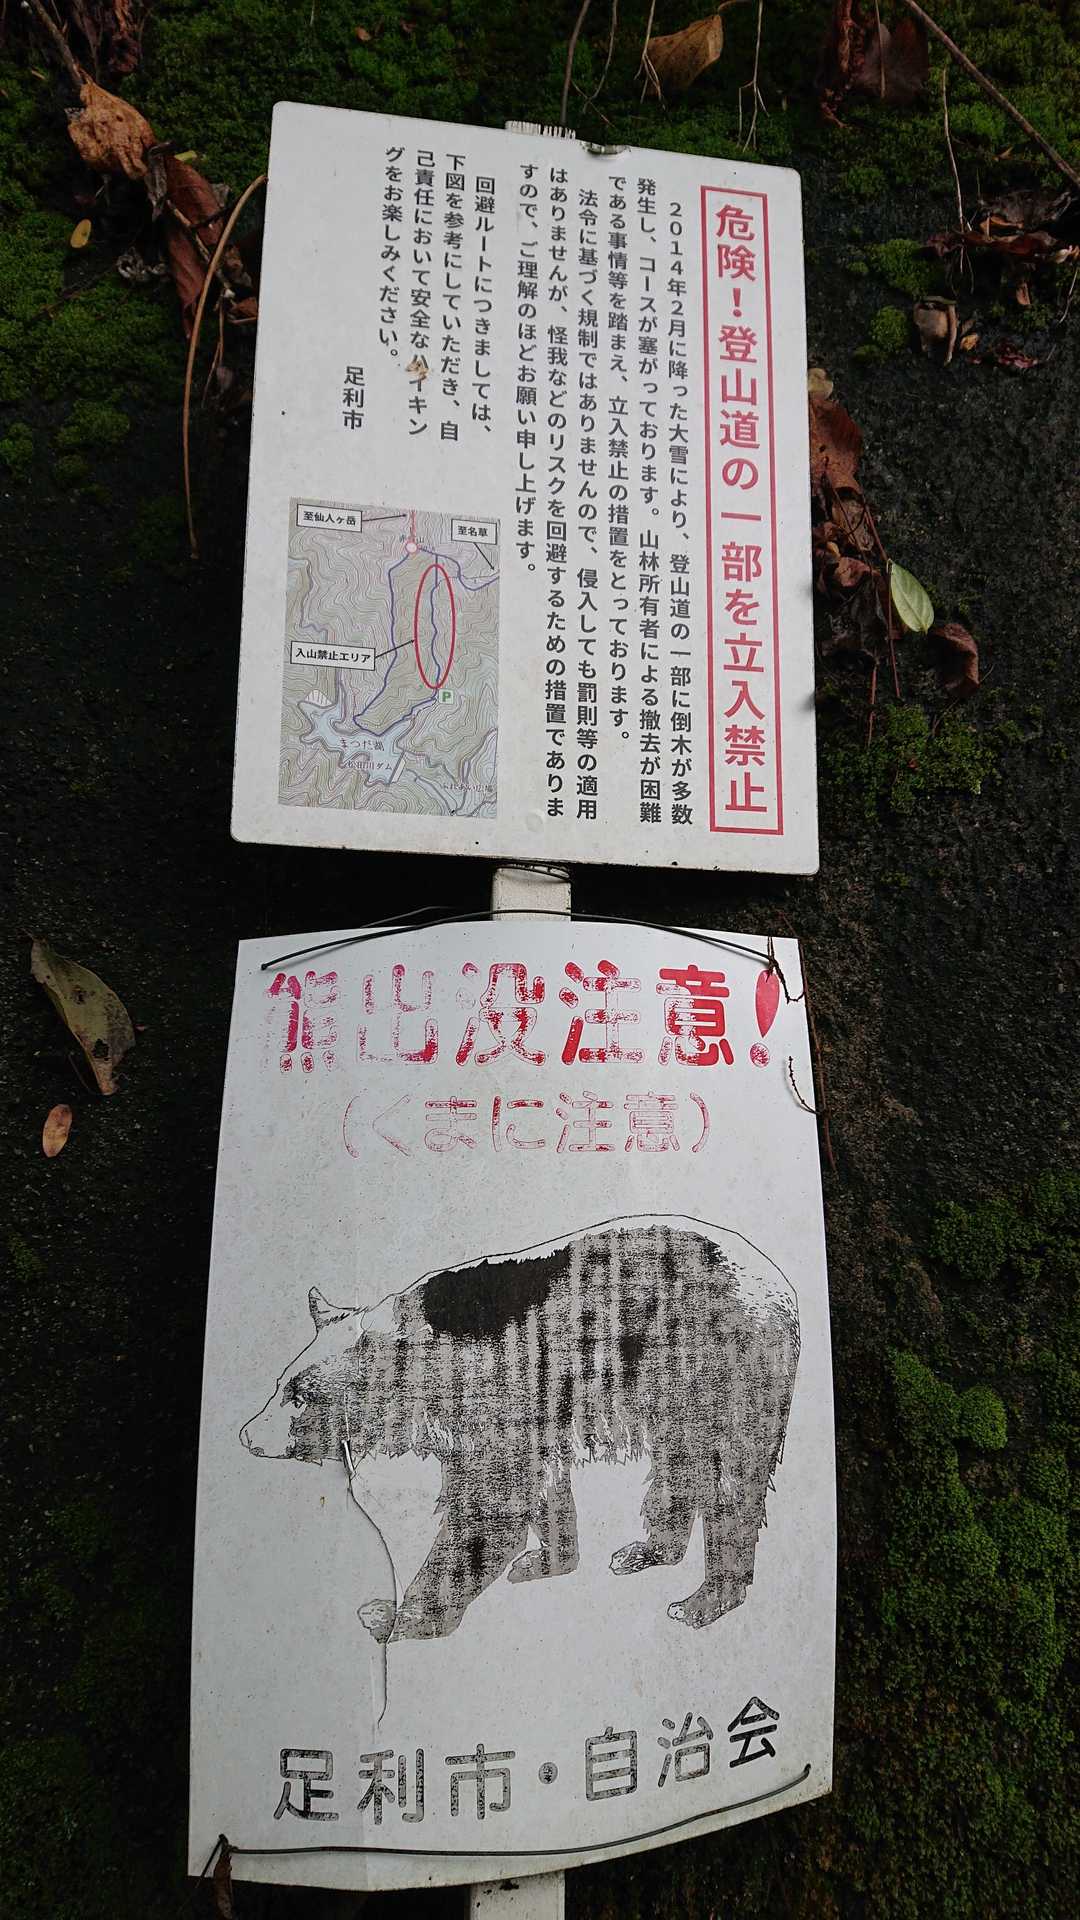 危険！登山道の一部を立入禁止
２０１４年２月に降った大雪により、登山道の一部に倒木が多数
発生し、コースが塞がっております。山林所有者による撤去が困難
である事情等を踏まえ、立入禁止の措置をとっております。
法令に基づく規制ではありませんので、侵入しても罰則等の適用
はありませんが、怪我などのリスクを回避するための措置でありま
すので、ご理解のほどお願い申し上げます。
回避ルートにつきましては、
下図を参考にしていただき、自
己責任において安全なハイキン
グをお楽しみください。
足利市
至仙人ヶ岳
至名草
入山禁止エリア
P
まつだ湖
松田川ダム
ふれあい広場
熊出没注意！
（くまに注意）
足利市・自治会